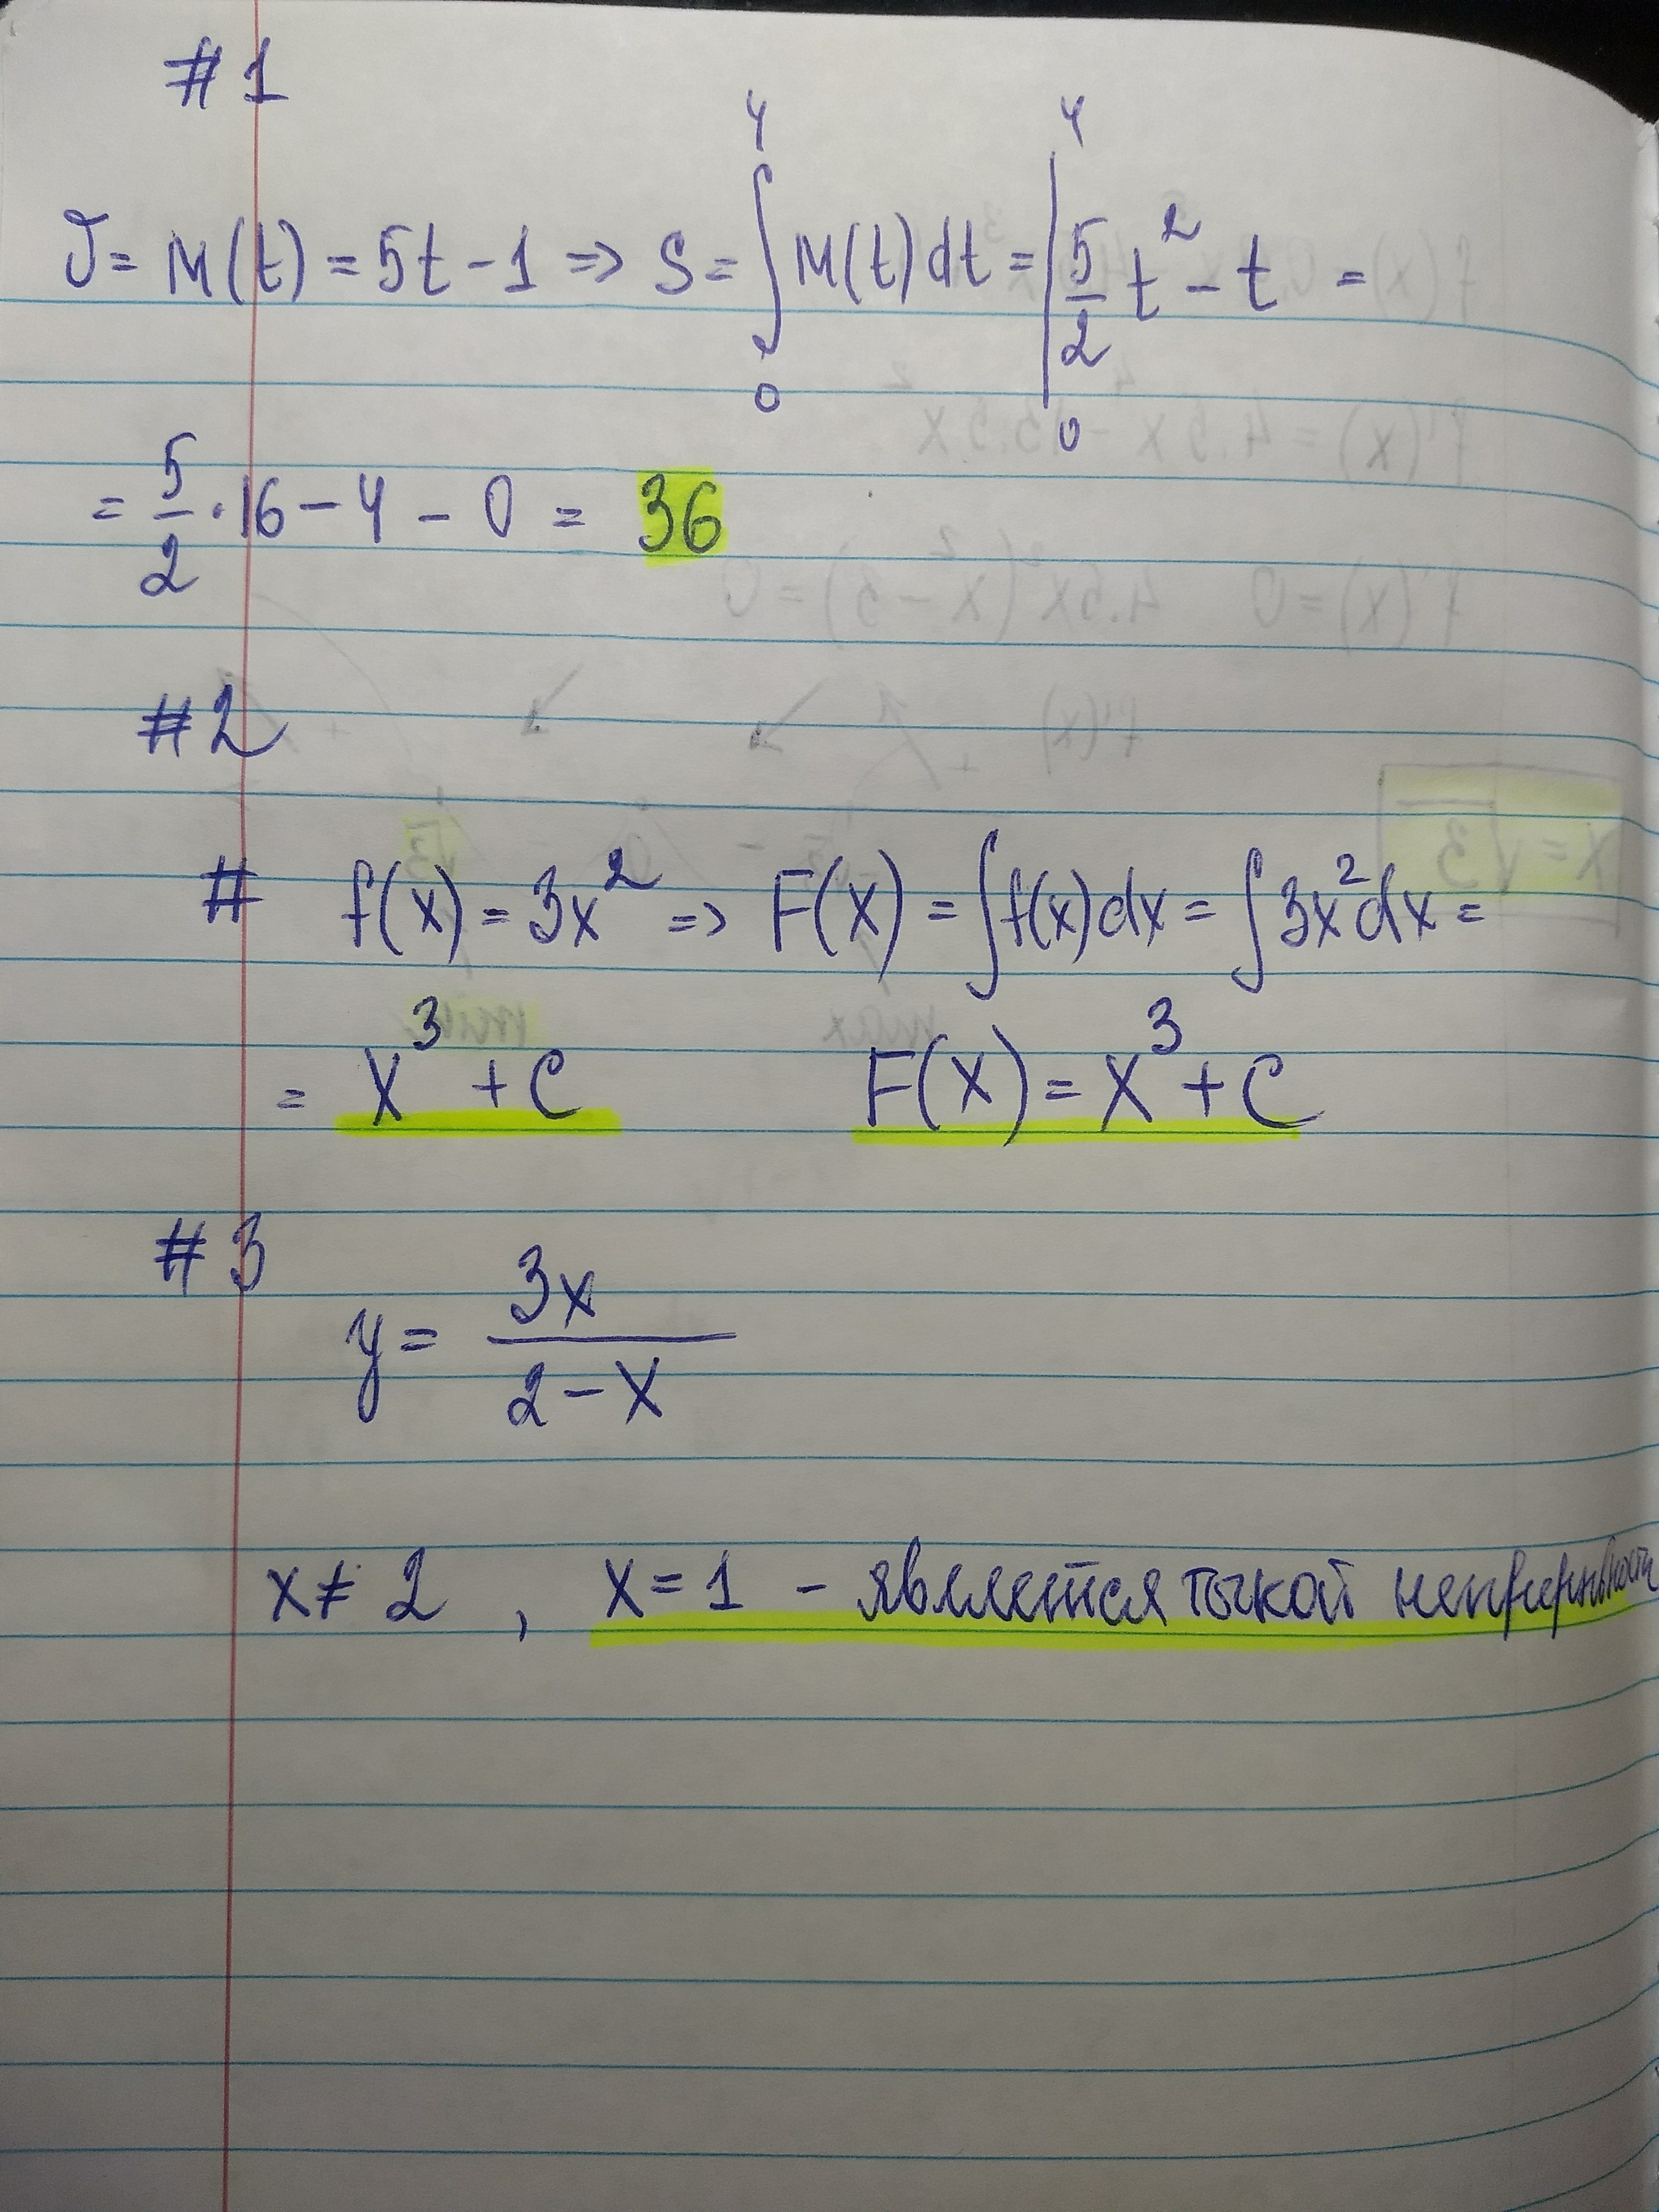 #1
V = M(t) = 5t - 1 => S = ∫₀⁴ M(t) dt = |₀⁴ 5/2 t² - t =
= 5/2 · 16 - 4 - 0 = 36
#2
# f(x) = 3x² => F(x) = ∫f(x)dx = ∫3x²dx =
= x³ + C F(x) = x³ + C
#3
y = 3x / 2 - x
x ≠ 2 , x = 1 - является точкой непрерывности